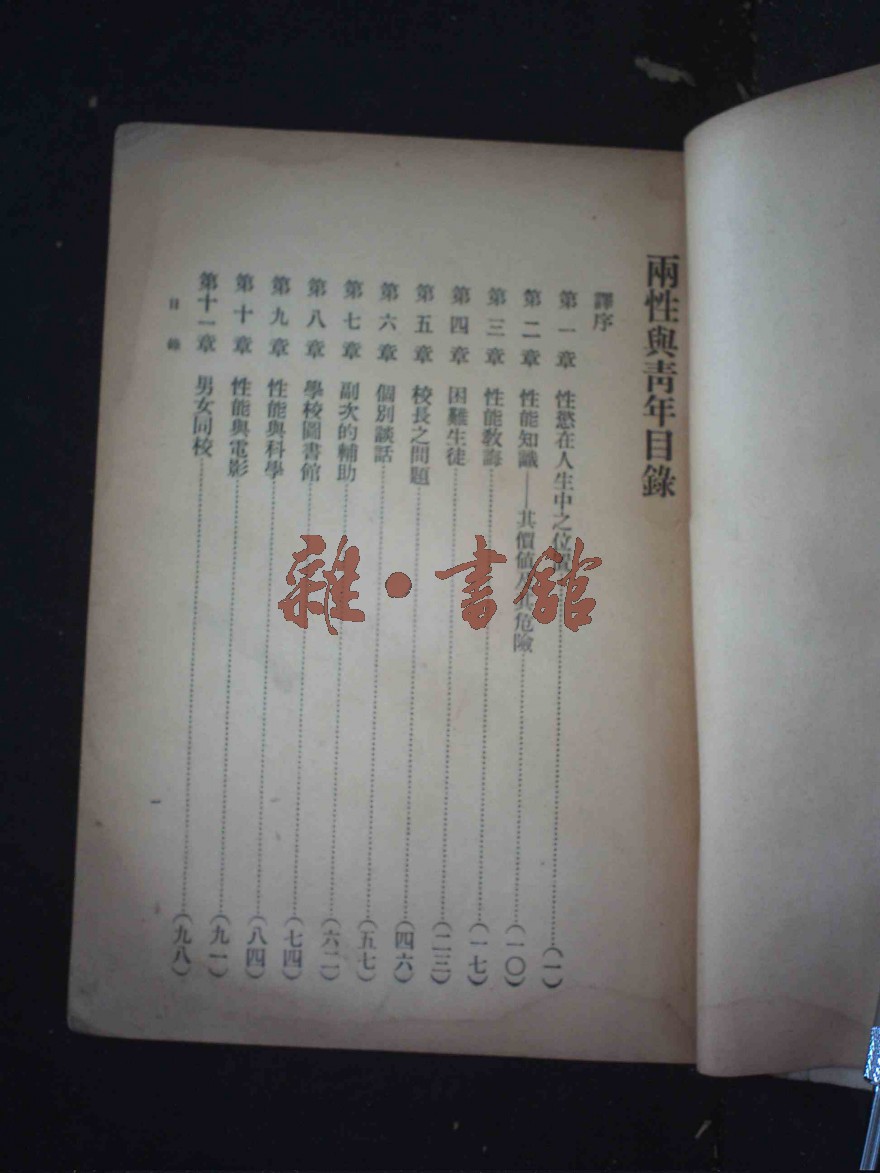 兩性與靑年目錄
譯序
第一章 性慾在人生中之位置……(一)
第二章 性能知識——其價值及其危險……(一〇)
第三章 性能敎誨……(一七)
第四章 困難生徒……(二三)
第五章 校長之問題……(四六)
第六章 個別談話……(五七)
第七章 副次的輔助……(六二)
第八章 學校圖書館……(七四)
第九章 性能與科學……(八四)
第十章 性能與電影……(九一)
第十一章 男女同校……(九八)
目錄
一
雜·書館